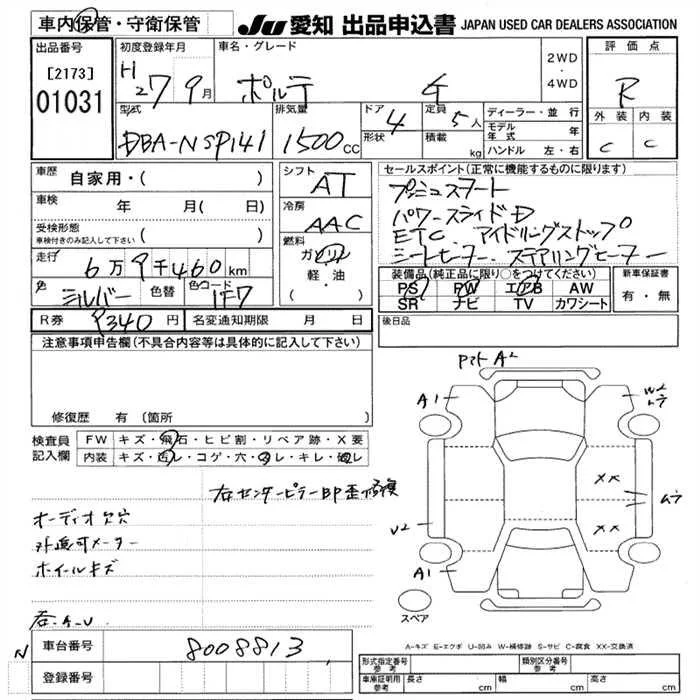 車内保管・守衛保管 JU 愛知 出品申込書 JAPAN USED CAR DEALERS ASSOCIATION
出品番号 初度登録年月 車名・グレード 2WD・4WD 評価点
[2173] H27 9月 ポルテ G R
01031
型式 排気量 ドア 4 定員 5人 ディーラー・並行 外装 内装
DBA-NSP141 1500CC 形状 積載 kg モデル年式 年 C C
ハンドル 左・右
車歴 自家用・( ) シフト AT セールスポイント(正常に機能するものに限ります)
車検 年 月( 日) 冷房 AAC プッシュスタート
受検形態 パワースライドD
車検付きのみ記入して下さい ( ) 燃料 ETC アイドリングストップ
走行 6万9千460km ガソリン シートヒーター ステアリングヒーター
軽・油
・( )
色 シルバー 色替 色コード 1F7 装備品(純正品に限り○をつけてください) 新車保証書
PS PW エアB AW 有・無
SR ナビ TV カワシート
R券 9340円 名変通知期限 月 日 後日品
注意事項申告欄(不具合内容等は具体的に記入して下さい)
修復歴 有 (箇所 )
検査員記入欄 FW キズ・飛石・ヒビ割・リペア跡・X要
内装 キズ・汚レ・コゲ・穴・スレ・キレ・破レ
右センターピラー凹歪修複
オーディオ欠穴
外速可メーター
ホイルキズ
フロント A2
A1
ムラ
XX
XX
U2
A1
スペア
A-キズ E-エクボ U-凹み W-補修跡 S-サビ C-腐食 XX-交換済
N 車台番号 8008813
登録番号
形式指定番号 参考 類別区分番号 参考
車庫証明用 参考 長さ cm 幅 cm 高さ cm